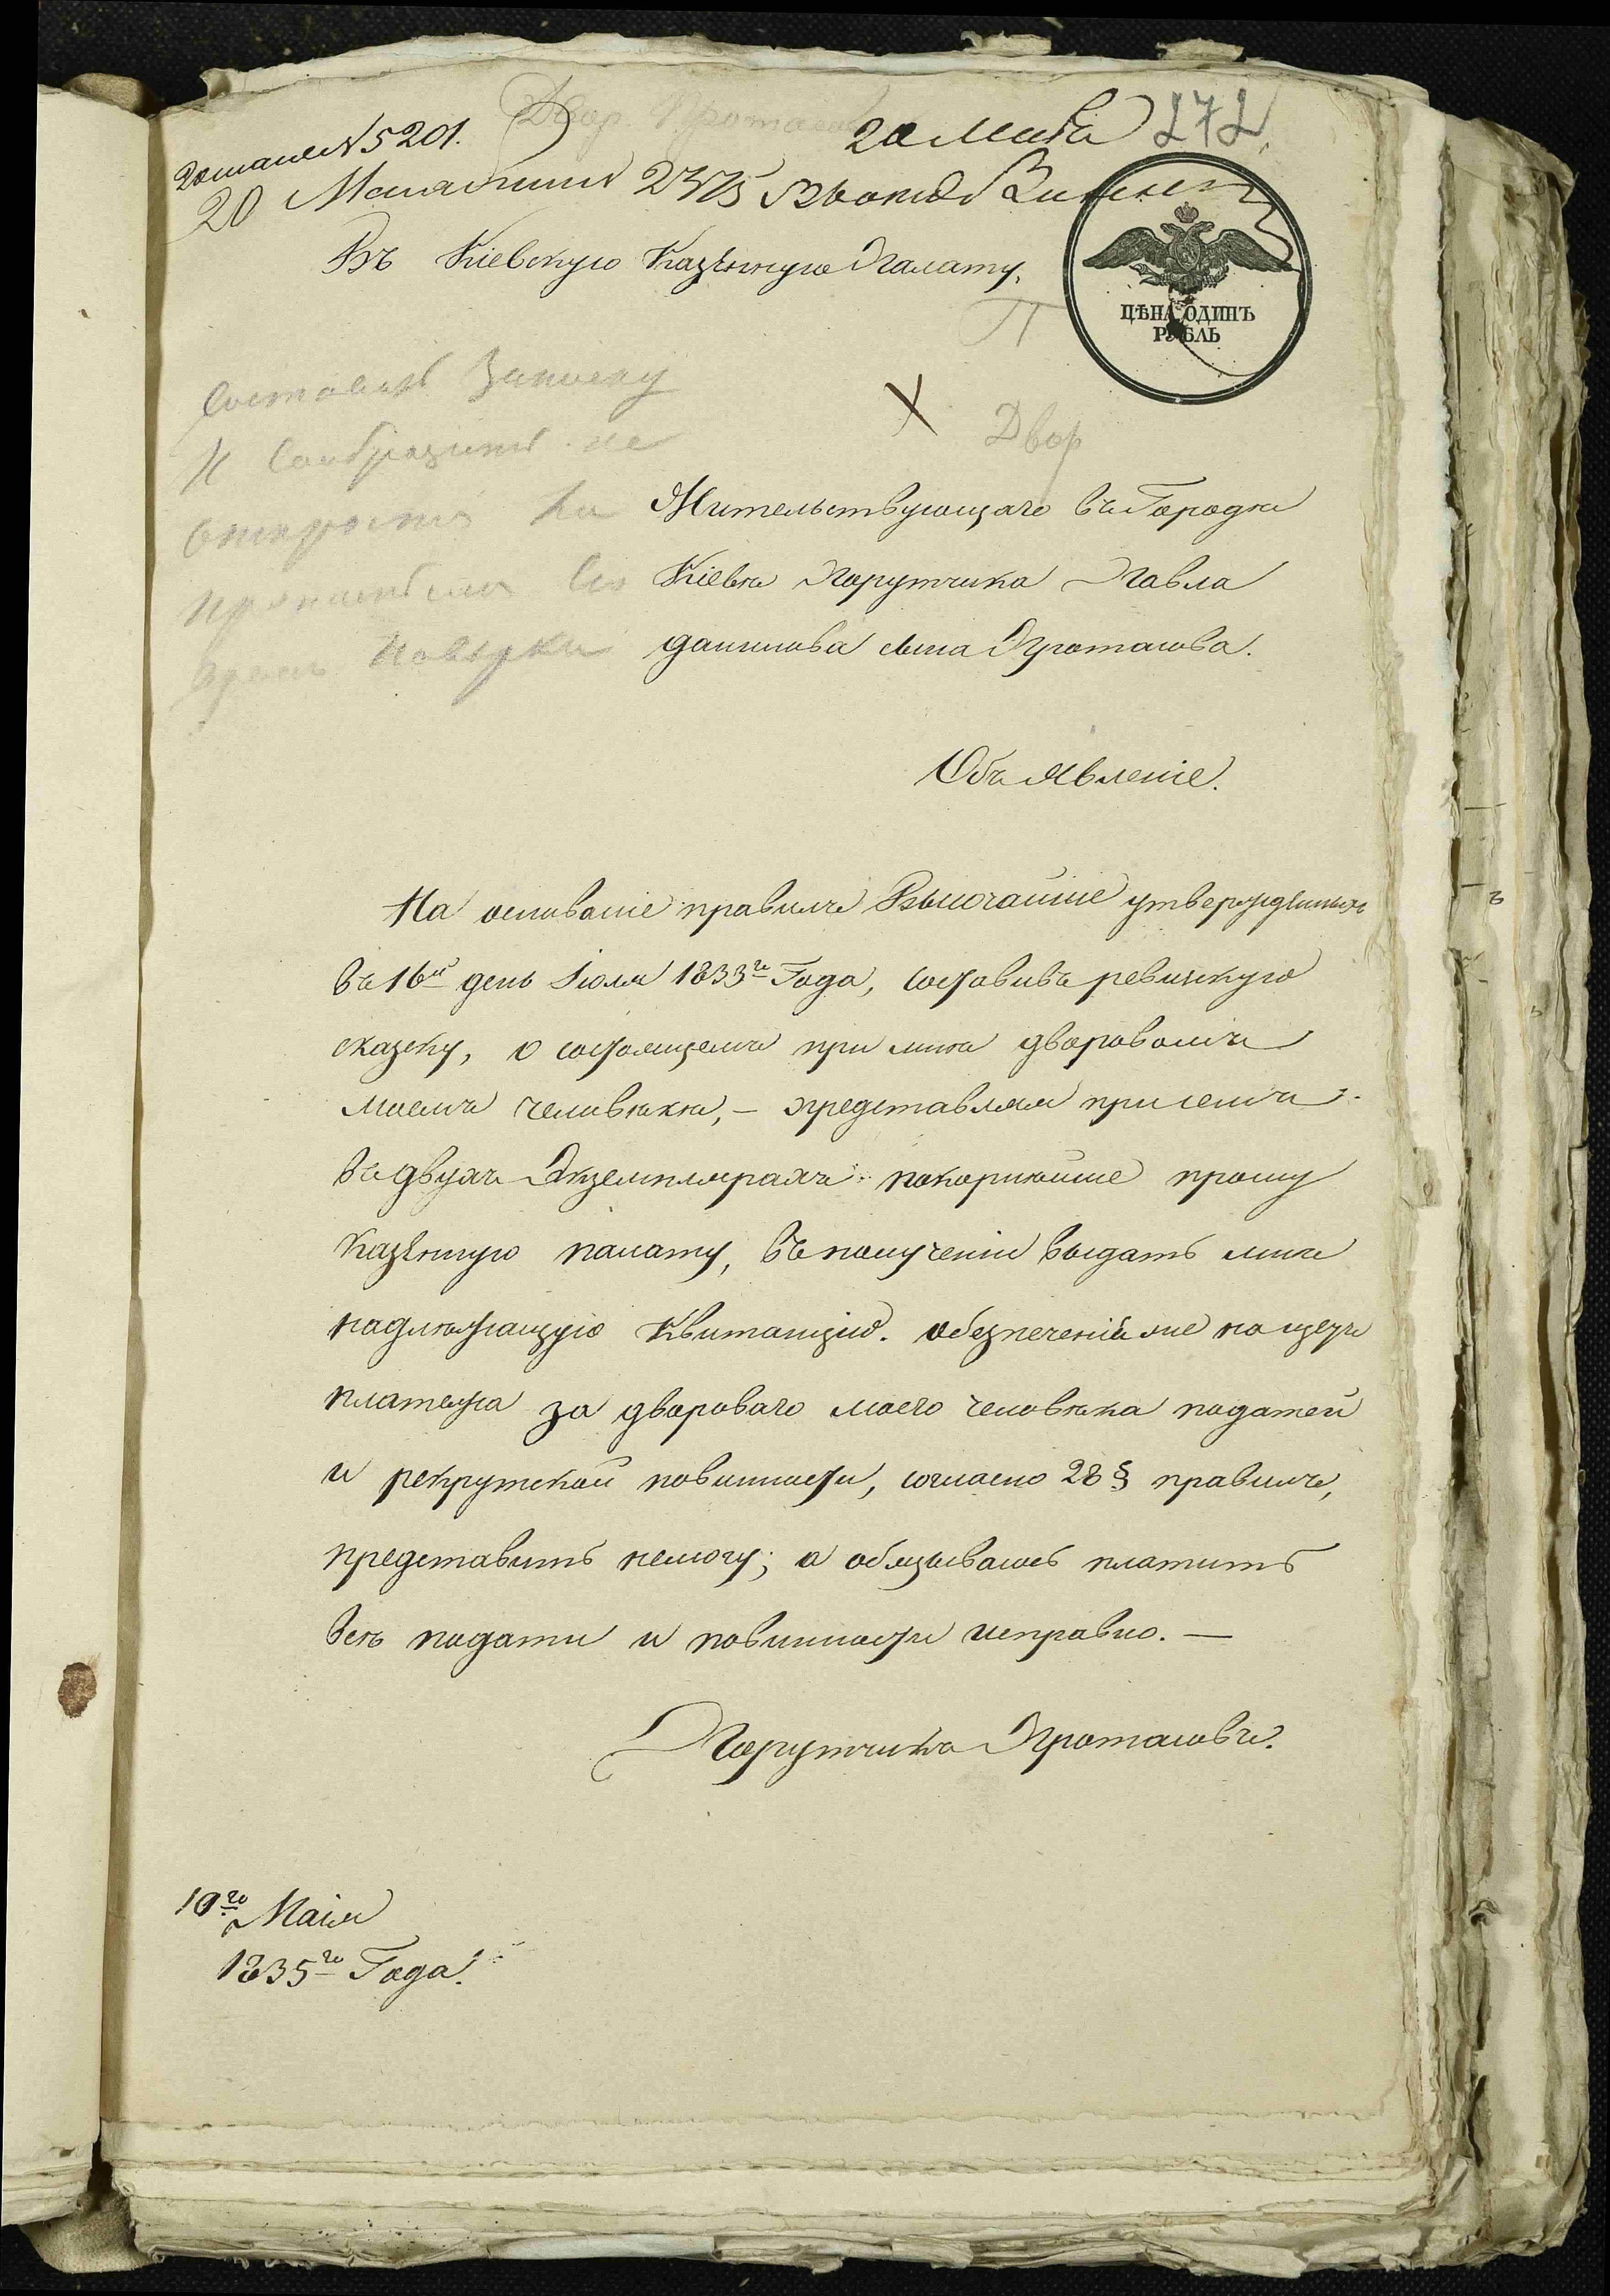 Двор. Протасов
20 Маія 272
№ 5201.
20 Мая 2375
Въ Кіевскую Казенную Палату.
ЦѢНА ОДИНЪ
РУБЛЬ
П
Составить Записку
и сообразить не
Х Двор
Жительствующаго въ Городѣ
Кіевѣ Порутчика Павла
данилова сына Протасова.
Объявленіе.
На основаніе правилъ Высочайше утвержденныхъ
въ 16й день Іюля 1833го Года, составивъ ревискую
сказку, о состоящемъ при мнѣ дворовомъ
моемъ человѣкѣ, — представляя присемъ
въ двухъ Экземплярахъ покорнѣйше прошу
Казенную палату, въ полученіи выдать мнѣ
надлѣжащую Квитанцію. обезпеченія же на щетъ
платежа за дворового моего человѣка податей
и рекрутской повинности, согласно 28 § правилъ,
представить немогу; а обязываюсь платить
всѣ подати и повинности исправно. —
Порутчикъ Протасовъ.
10го Маія
1835го Года.